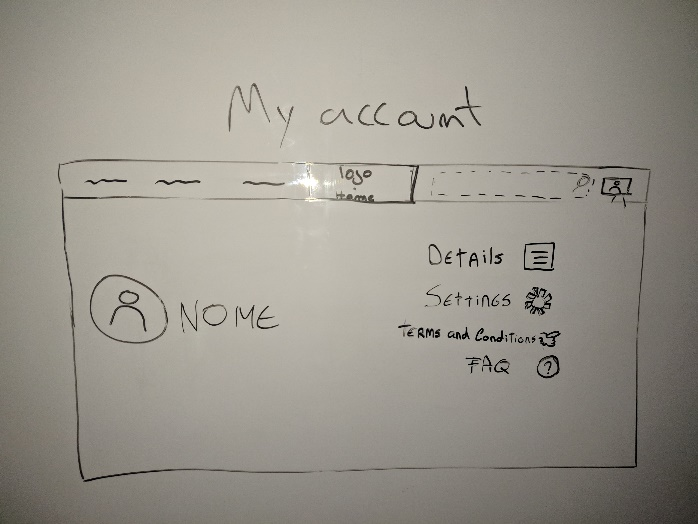 My account
logo
Home
NOME
Details
Settings
TERMS and Conditions
FAQ ?